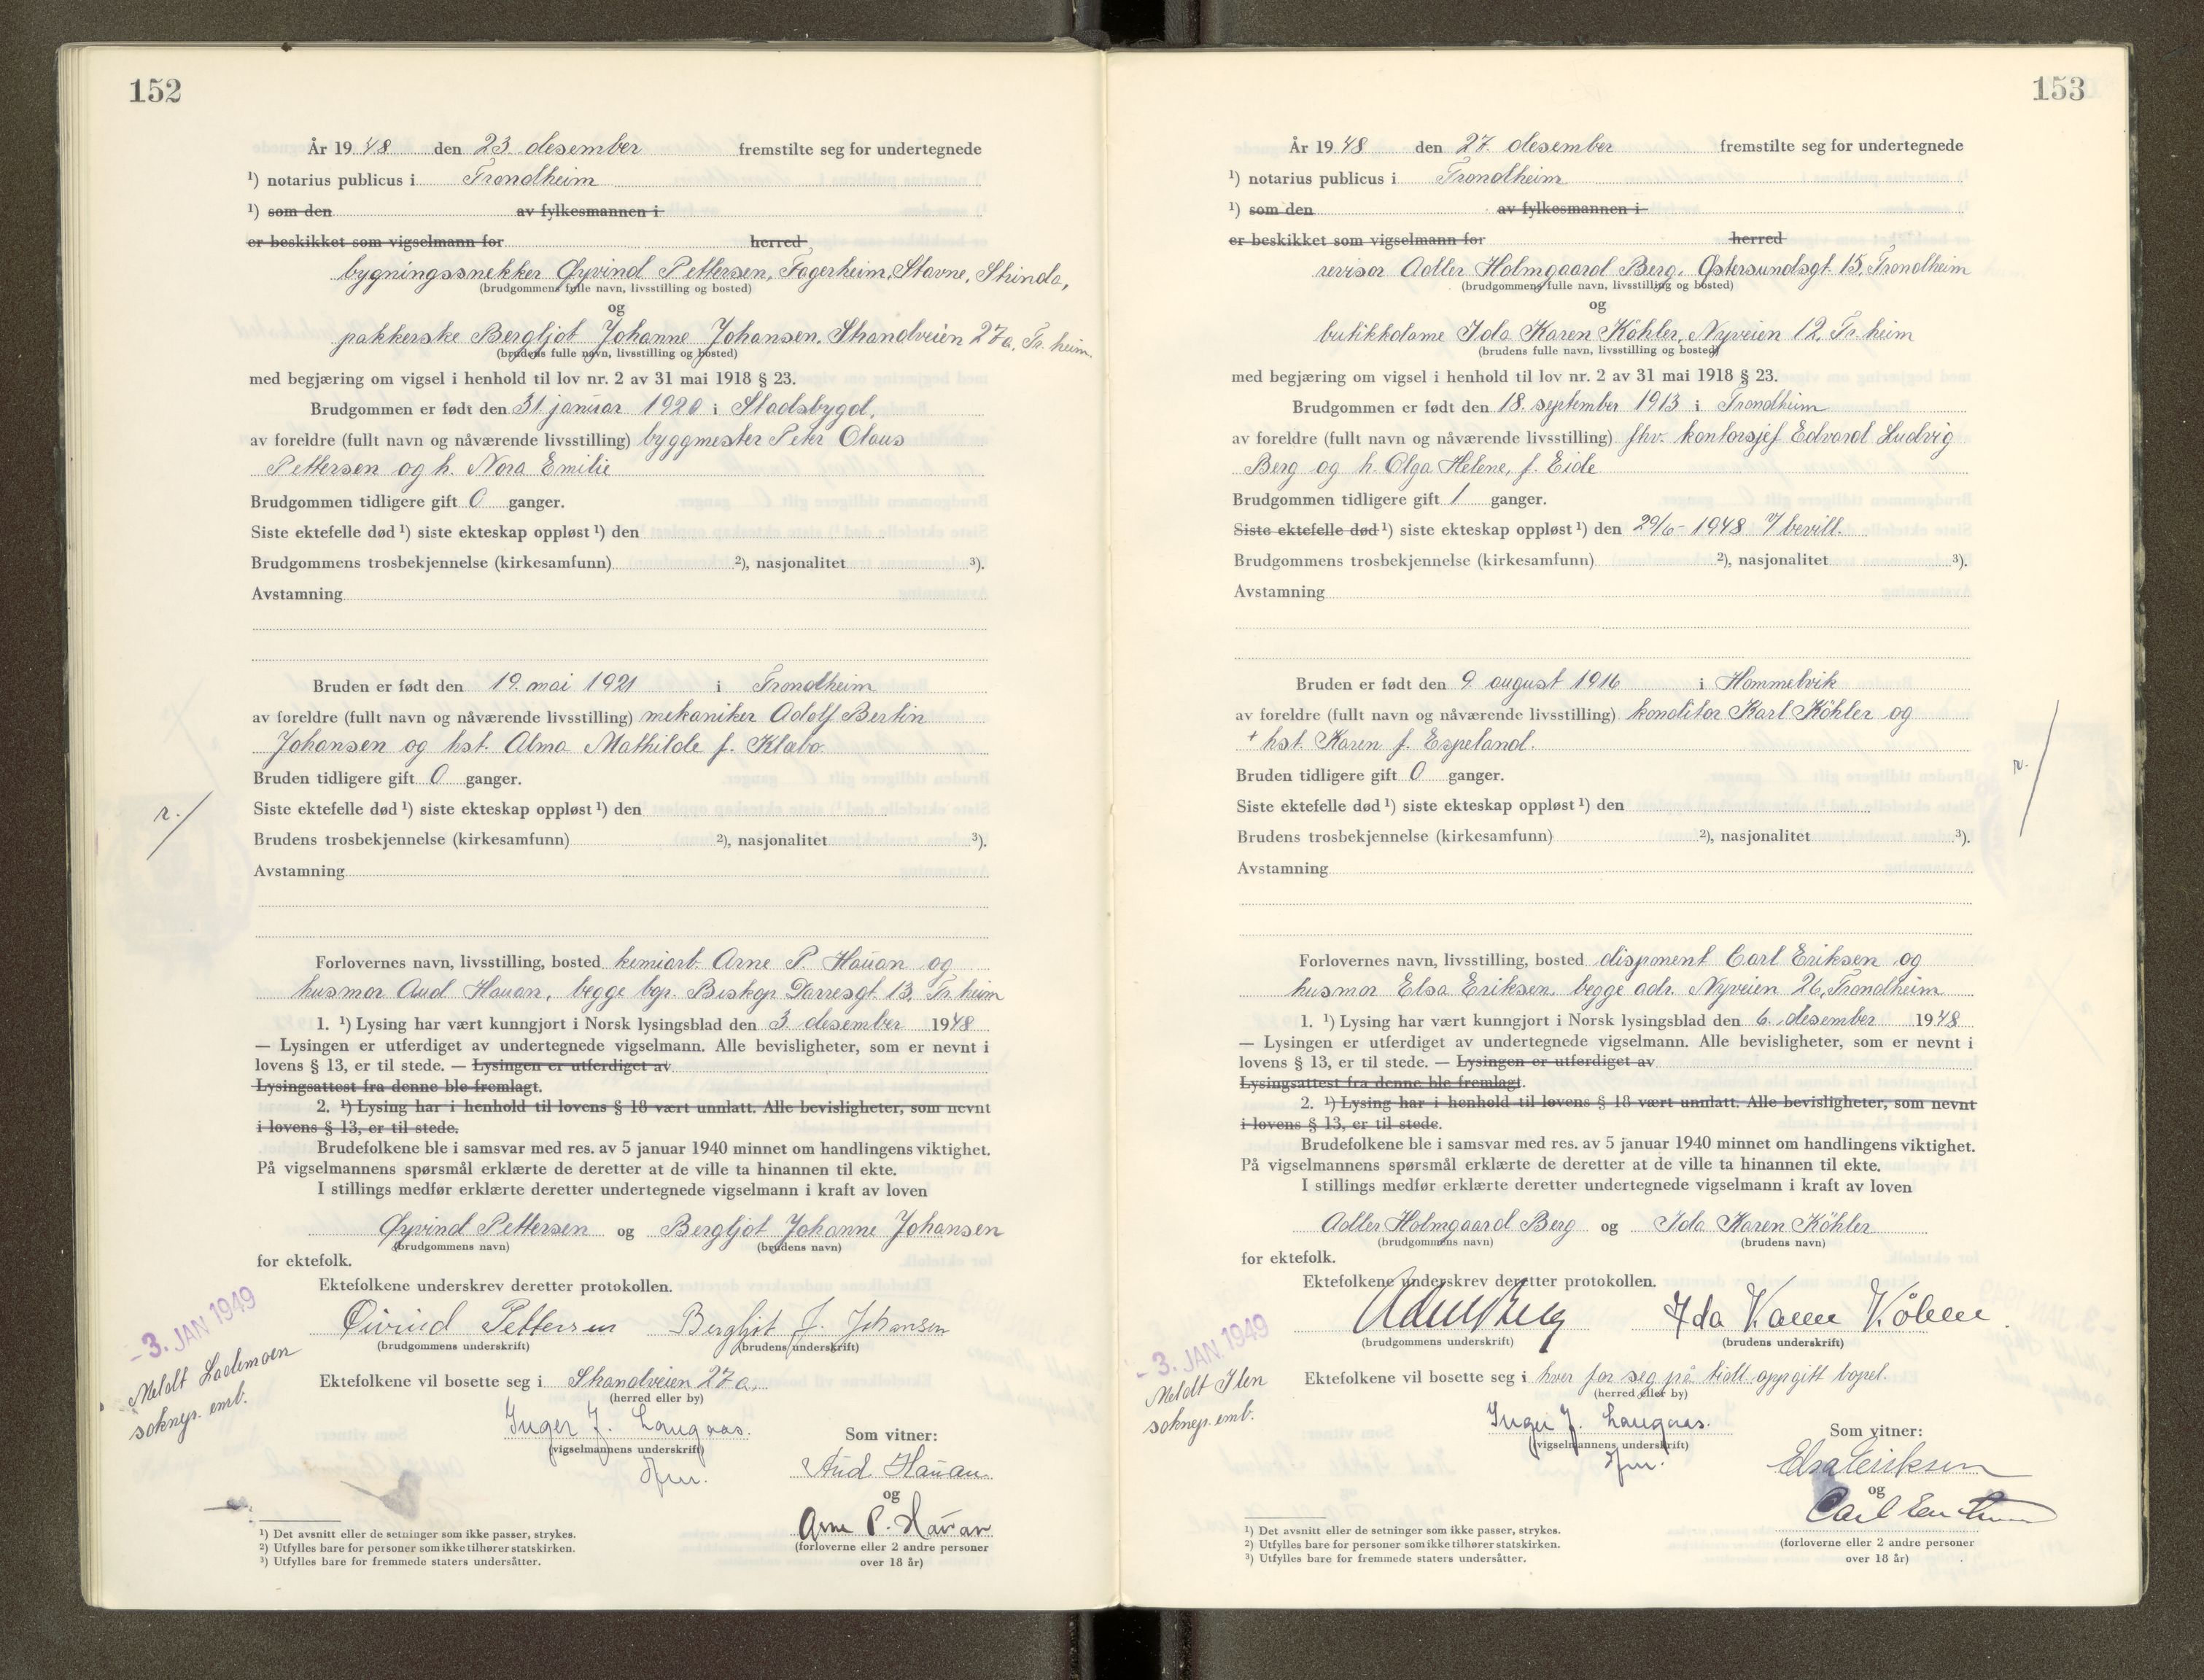 152
År 1948 den 23 desember fremstilte seg for undertegnede
¹) notarius publicus i Trondheim
¹) som den av fylkesmannen i
er beskikket som vigselmann for herred
bygningssnekker Øyvind Pettersen, Fagerheim, Stavne, Strinda,
(brudgommens fulle navn, livsstilling og bosted)
og
pakkerske Bergljot Johanne Johansen, Strandveien 27a, Tr.heim.
(brudens fulle navn, livsstilling og bosted)
med begjæring om vigsel i henhold til lov nr. 2 av 31 mai 1918 § 23.
Brudgommen er født den 31 januar 1920 i Stadsbygd,
av foreldre (fullt navn og nåværende livsstilling) byggmester Peter Olaus
Pettersen og h. Nora Emilie
Brudgommen tidligere gift 0 ganger.
Siste ektefelle død ¹) siste ekteskap oppløst ¹) den
Brudgommens trosbekjennelse (kirkesamfunn) ²), nasjonalitet ³).
Avstamning
Bruden er født den 19. mai 1921 i Trondheim
av foreldre (fullt navn og nåværende livsstilling) mekaniker Adolf Bertin
Johansen og hst. Alma Mathilde f. Klæbo
Bruden tidligere gift 0 ganger.
Siste ektefelle død ¹) siste ekteskap oppløst ¹) den
r. /
Brudens trosbekjennelse (kirkesamfunn) ²), nasjonalitet ³).
Avstamning
Forlovernes navn, livsstilling, bosted kemiarb. Arne P. Hauan og
husmor Aud Hauan, begge bop. Biskop Darresgt. 13, Tr.heim
1. ¹) Lysing har vært kunngjort i Norsk lysingsblad den 3. desember 1948
— Lysingen er utferdiget av undertegnede vigselmann. Alle bevisligheter, som er nevnt i
lovens § 13, er til stede. — Lysingen er utferdiget av
Lysingsattest fra denne ble fremlagt.
2. ¹) Lysing har i henhold til lovens § 18 vært unnlatt. Alle bevisligheter, som nevnt
i lovens § 13, er til stede.
Brudefolkene ble i samsvar med res. av 5 januar 1940 minnet om handlingens viktighet.
På vigselmannens spørsmål erklærte de deretter at de ville ta hinannen til ekte.
I stillings medfør erklærte deretter undertegnede vigselmann i kraft av loven
Øyvind Pettersen og Bergljot Johanne Johansen
(brudgommens navn) (brudens navn)
for ektefolk.
Ektefolkene underskrev deretter protokollen.
Øivind Pettersen Bergljot J. Johansen
(brudgommens underskrift) (brudens underskrift)
- 3. JAN 1949
Meldt Lademoen
soknepr. emb.
Ektefolkene vil bosette seg i Strandveien 27a.
(herred eller by)
Inger J. Laugaas.
(vigselmannens underskrift)
Som vitner:
Aud Hauan
og
Arne P. Hauan
(forloverne eller 2 andre personer
over 18 år)
¹) Det avsnitt eller de setninger som ikke passer, strykes.
²) Utfylles bare for personer som ikke tilhører statskirken.
³) Utfylles bare for fremmede staters undersåtter.
153
År 1948 den 27. desember fremstilte seg for undertegnede
¹) notarius publicus i Trondheim
¹) som den av fylkesmannen i
er beskikket som vigselmann for herred
revisor Adler Holmgaard Berg, Østersundsgt. 15, Trondheim
(brudgommens fulle navn, livsstilling og bosted)
og
butikkdame Ida Karen Köhler, Nyveien 12, Tr.heim
(brudens fulle navn, livsstilling og bosted)
med begjæring om vigsel i henhold til lov nr. 2 av 31 mai 1918 § 23.
Brudgommen er født den 18. september 1913 i Trondheim
av foreldre (fullt navn og nåværende livsstilling) fhv. kontorsjef Edvard Ludvig
Berg og h. Olga Helene, f. Eide
Brudgommen tidligere gift 1 ganger.
Siste ektefelle død ¹) siste ekteskap oppløst ¹) den 29/6- 1948 v/ bevill.
Brudgommens trosbekjennelse (kirkesamfunn) ²), nasjonalitet ³).
Avstamning
Bruden er født den 9. august 1916 i Hommelvik
av foreldre (fullt navn og nåværende livsstilling) konditor Karl Köhler og
+ hst. Karen f. Espeland.
Bruden tidligere gift 0 ganger.
r. /
Siste ektefelle død ¹) siste ekteskap oppløst ¹) den
Brudens trosbekjennelse (kirkesamfunn) ²), nasjonalitet ³).
Avstamning
Forlovernes navn, livsstilling, bosted disponent Carl Eriksen og
husmor Elsa Eriksen, begge adr. Nyveien 26, Trondheim
1. ¹) Lysing har vært kunngjort i Norsk lysingsblad den 6. desember 1948
— Lysingen er utferdiget av undertegnede vigselmann. Alle bevisligheter, som er nevnt i
lovens § 13, er til stede. — Lysingen er utferdiget av
Lysingsattest fra denne ble fremlagt.
2. ¹) Lysing har i henhold til lovens § 18 vært unnlatt. Alle bevisligheter, som nevnt
i lovens § 13, er til stede.
Brudefolkene ble i samsvar med res. av 5 januar 1940 minnet om handlingens viktighet.
På vigselmannens spørsmål erklærte de deretter at de ville ta hinannen til ekte.
I stillings medfør erklærte deretter undertegnede vigselmann i kraft av loven
Adler Holmgaard Berg og Ida Karen Köhler
(brudgommens navn) (brudens navn)
for ektefolk.
Ektefolkene underskrev deretter protokollen.
Adler Berg Ida Karen Köhler.
(brudgommens underskrift) (brudens underskrift)
- 3. JAN 1949
Meldt Ilen
soknepr. emb.
Ektefolkene vil bosette seg i hver for seg på tidl. oppgitt bopel.
(herred eller by)
Inger J. Laugaas.
(vigselmannens underskrift)
Som vitner:
Elsa Eriksen
og
Carl Eriksen
(forloverne eller 2 andre personer
over 18 år)
¹) Det avsnitt eller de setninger som ikke passer, strykes.
²) Utfylles bare for personer som ikke tilhører statskirken.
³) Utfylles bare for fremmede staters undersåtter.